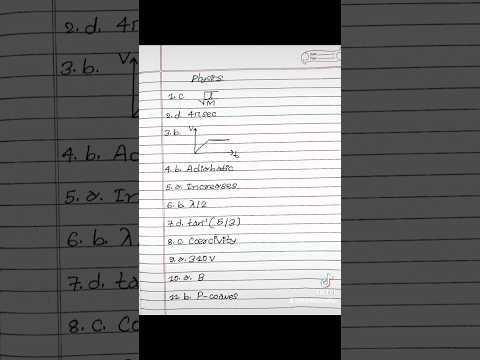 Physics
1. c √T/M
2. d 4π sec
3. b. V t
4. b. Adiabatic
5. a. Increases
6. b. λ/2
7. d. tan⁻¹(5/3)
8. c. Coercivity
9. a. 310 V
10. a. B
11. b P-waves
2. d. 4π
3. b. V
4. b. Ad
5. a. In
6. b. λ
7. d. ta
8. c. Co